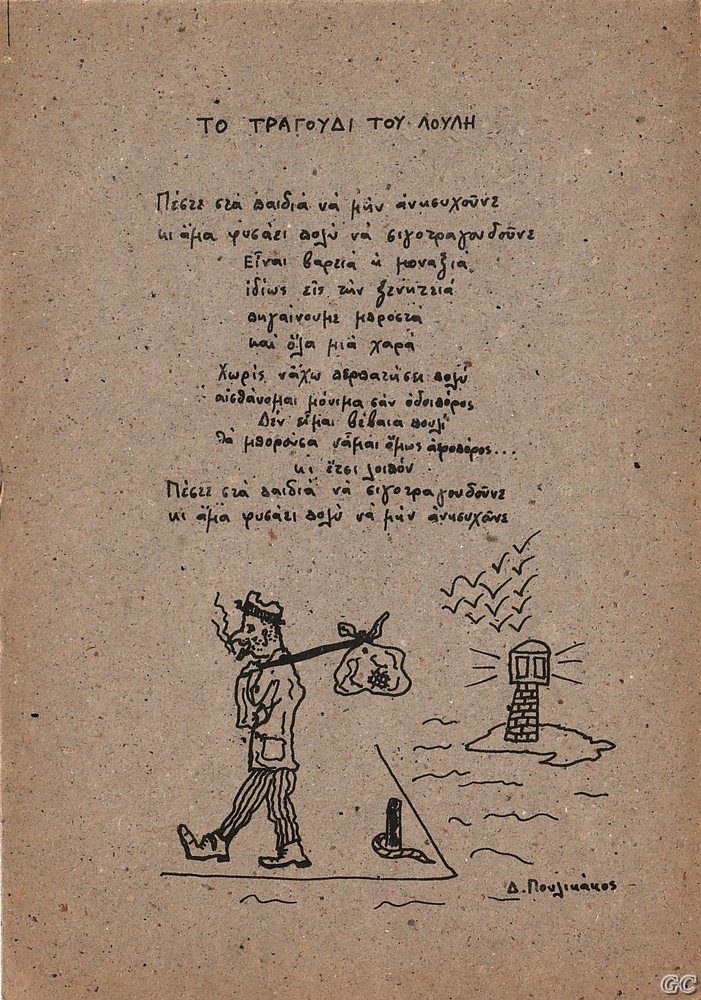 ΤΟ ΤΡΑΓΟΥΔΙ ΤΟΥ ΛΟΥΛΗ
Πέστε στὰ παιδιά νά μήν ἀνησυχοῦνε
κι ἅμα φυσάει πολύ νά σιγοτραγουδοῦνε
Εἶναι βαρειά ἡ μοναξιά
ἰδίως εἰς τήν ξενητειά
πηγαίνουμε μπροστά
καί ὅλα μιά χαρά
Χωρίς νἄχω περπατήσει πολύ
αἰσθάνομαι μόνιμα σάν ὁδοιπόρος
Δέν εἶμαι βέβαια πουλί
θά μποροῦσα νἆμαι ὅμως ἀεροπόρος...
κι ἔτσι λοιπόν
Πέστε στά παιδιά νά σιγοτραγουδοῦνε
κι ἅμα φυσάει πολύ νά μήν ἀνησυχοῦνε
Δ. Πουλικάκος
GC